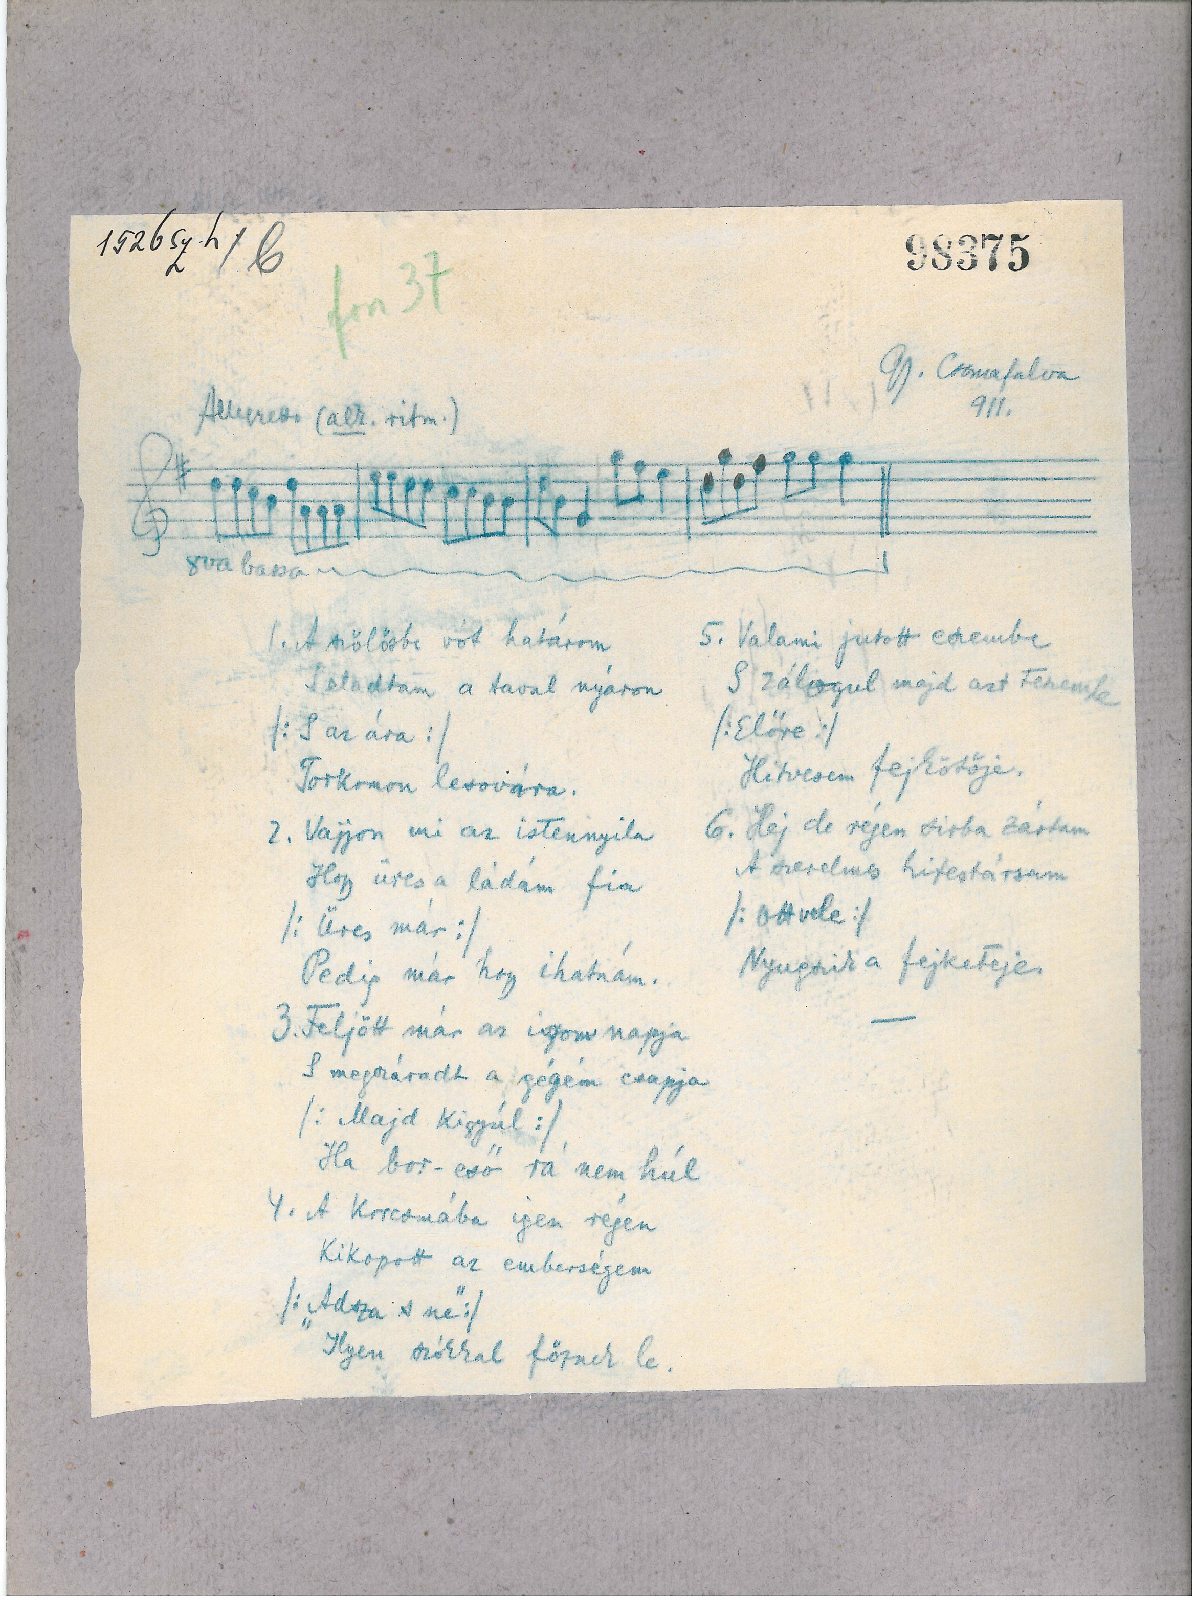 1526 sz. h / C
98375
fon 37
Gy. Csomafalva
911.
Allegretto (alk. ritm.)
8va bassa
1. A szölösbe vót határom
S eladtam a taval nyáron
/: S az ára :/
Torkomon lesovára.
2. Vajjon mi az istennyila
Hogy üres a ládám fia
/: Üres már :/
Pedig már hogy ihatnám.
3. Feljött már az izom napja
S megszáradt a gégém csapja
/: Majd kigyúl :/
Ha bor-eső rá nem húl
4. A Korcsmába igen régen
Kikopott az emberségem
/: „Adsza s ne" :/
Ilyen szókkal főznek le.
5. Valami jutott eszembe
S zálogul majd azt teszem le
/: Előre :/
Hitvesem fejkötője.
6. Hej de régen sirba zártam
A szerelmes hitestársam
/: Ott vele :/
Nyugszik a fejketeje.